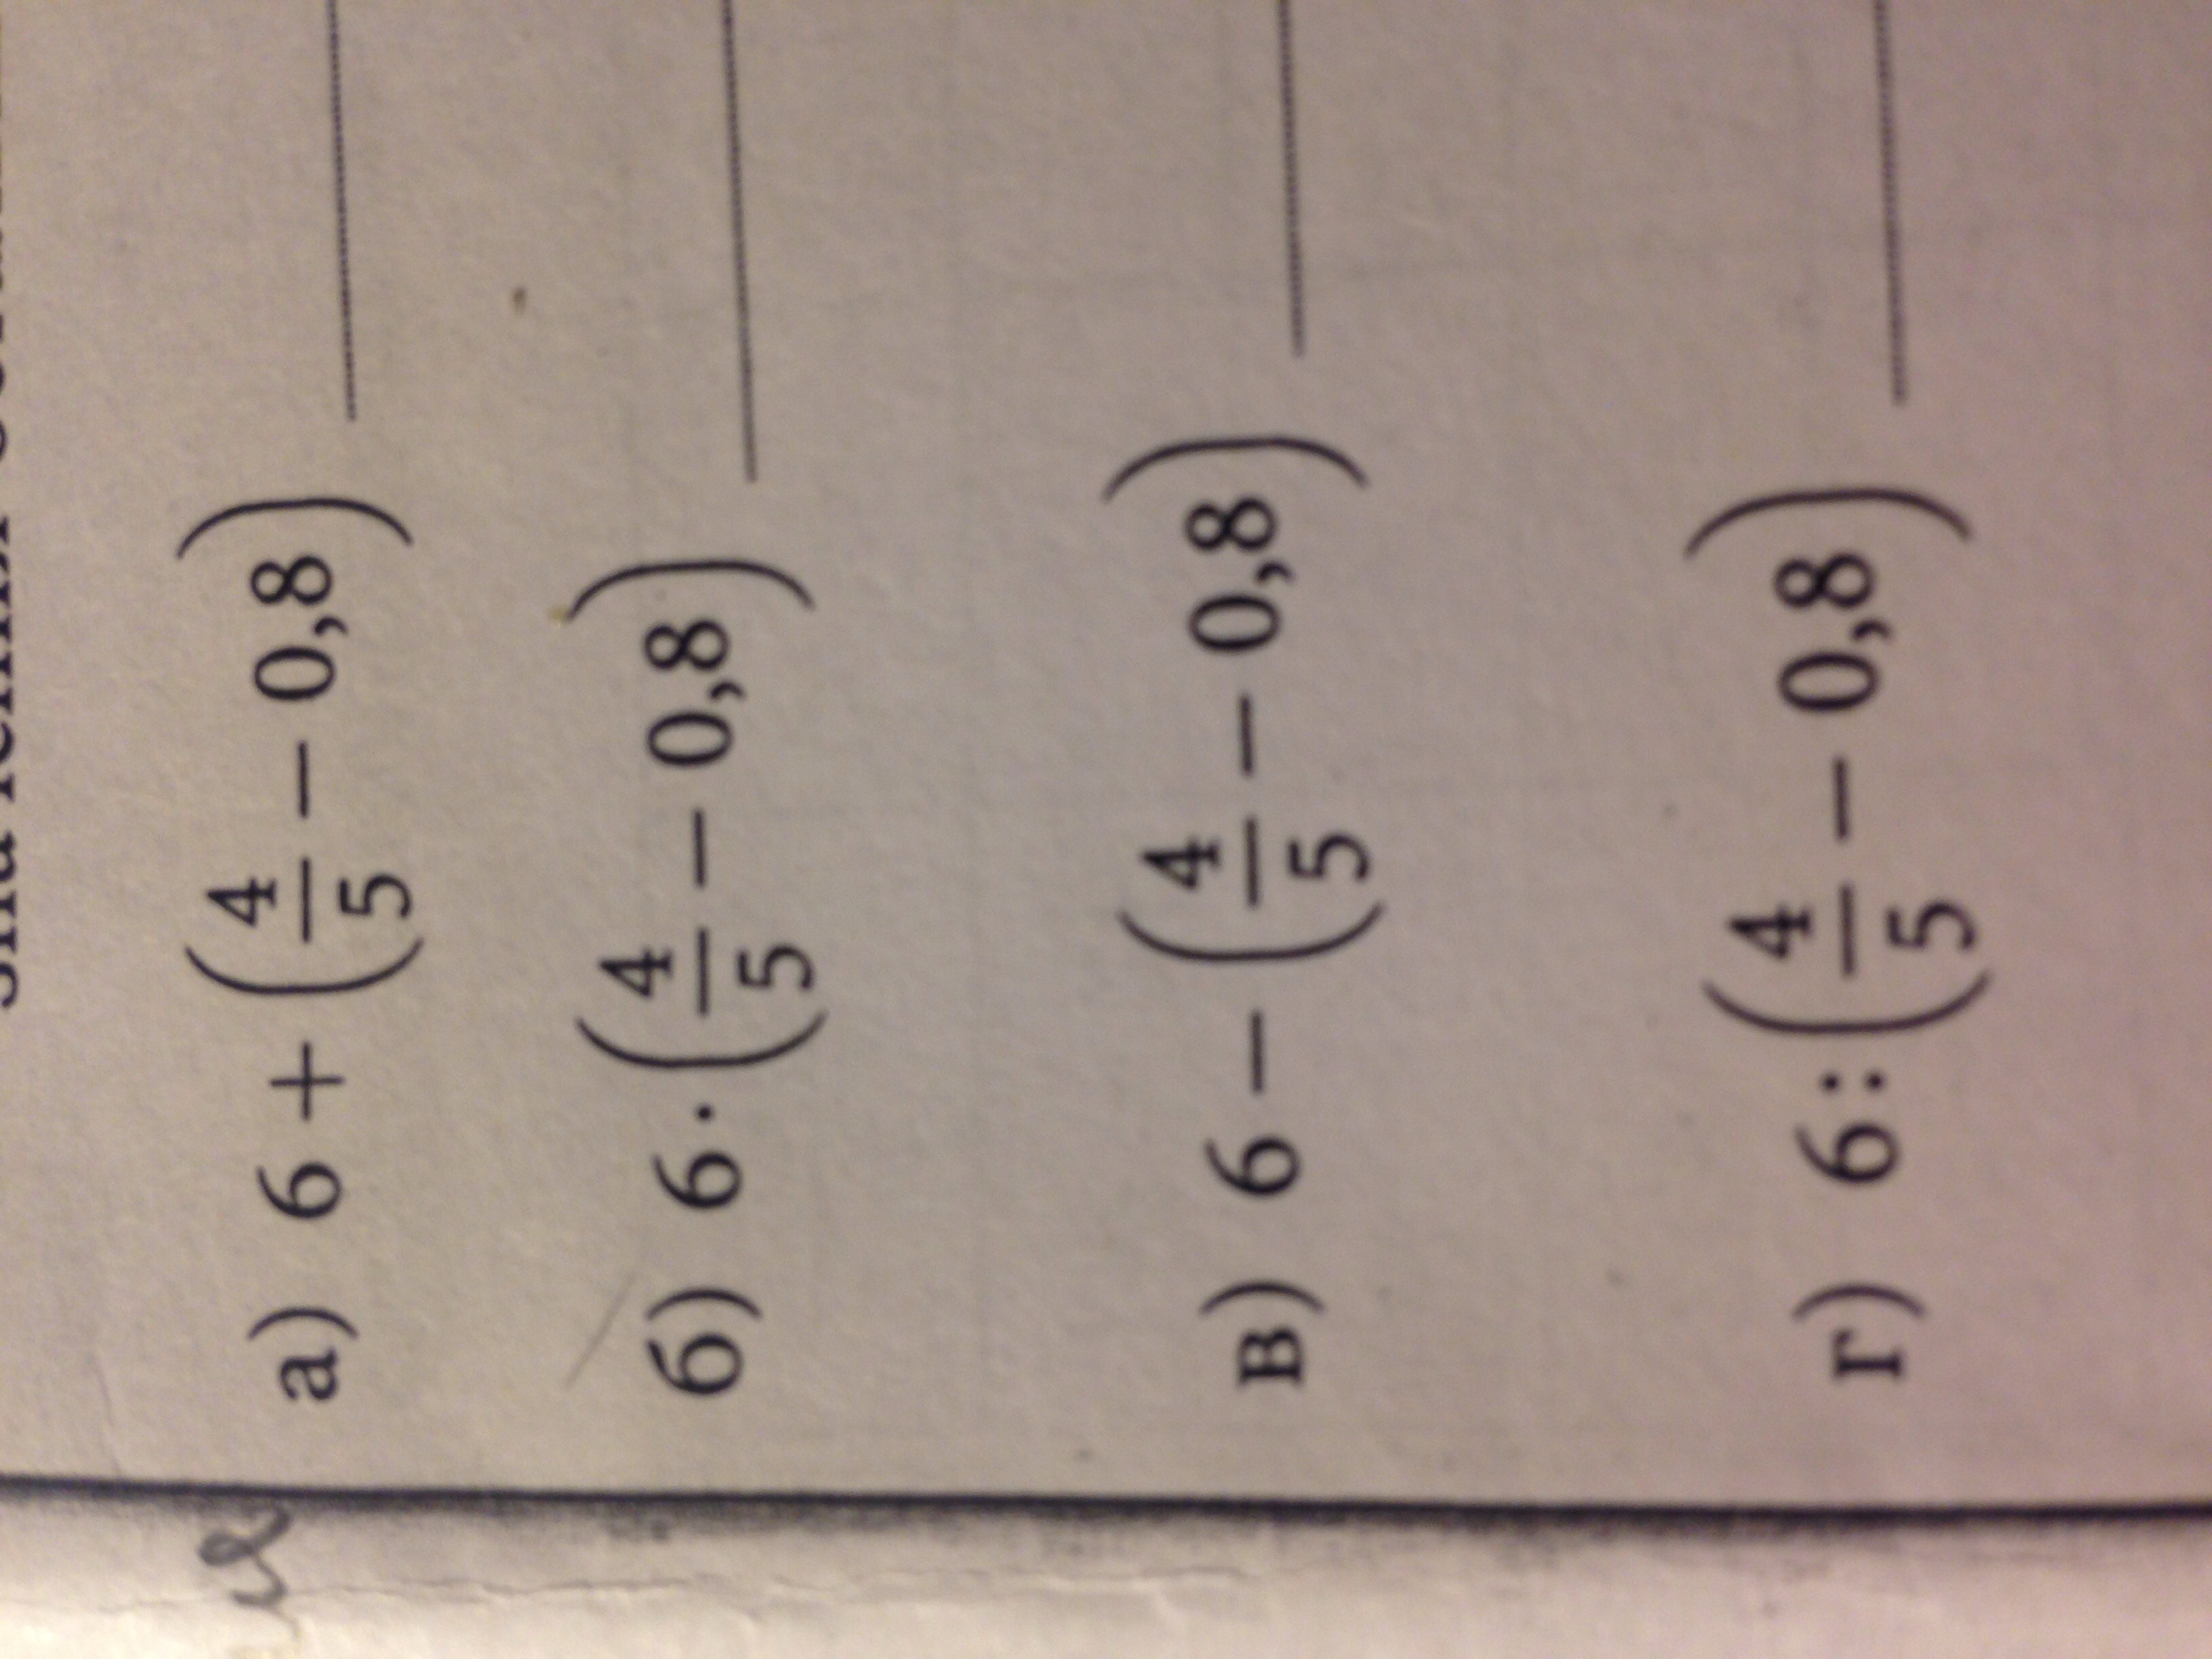 а) 6 + (4/5 − 0,8)
б) 6 · (4/5 − 0,8)
в) 6 − (4/5 − 0,8)
г) 6 : (4/5 − 0,8)